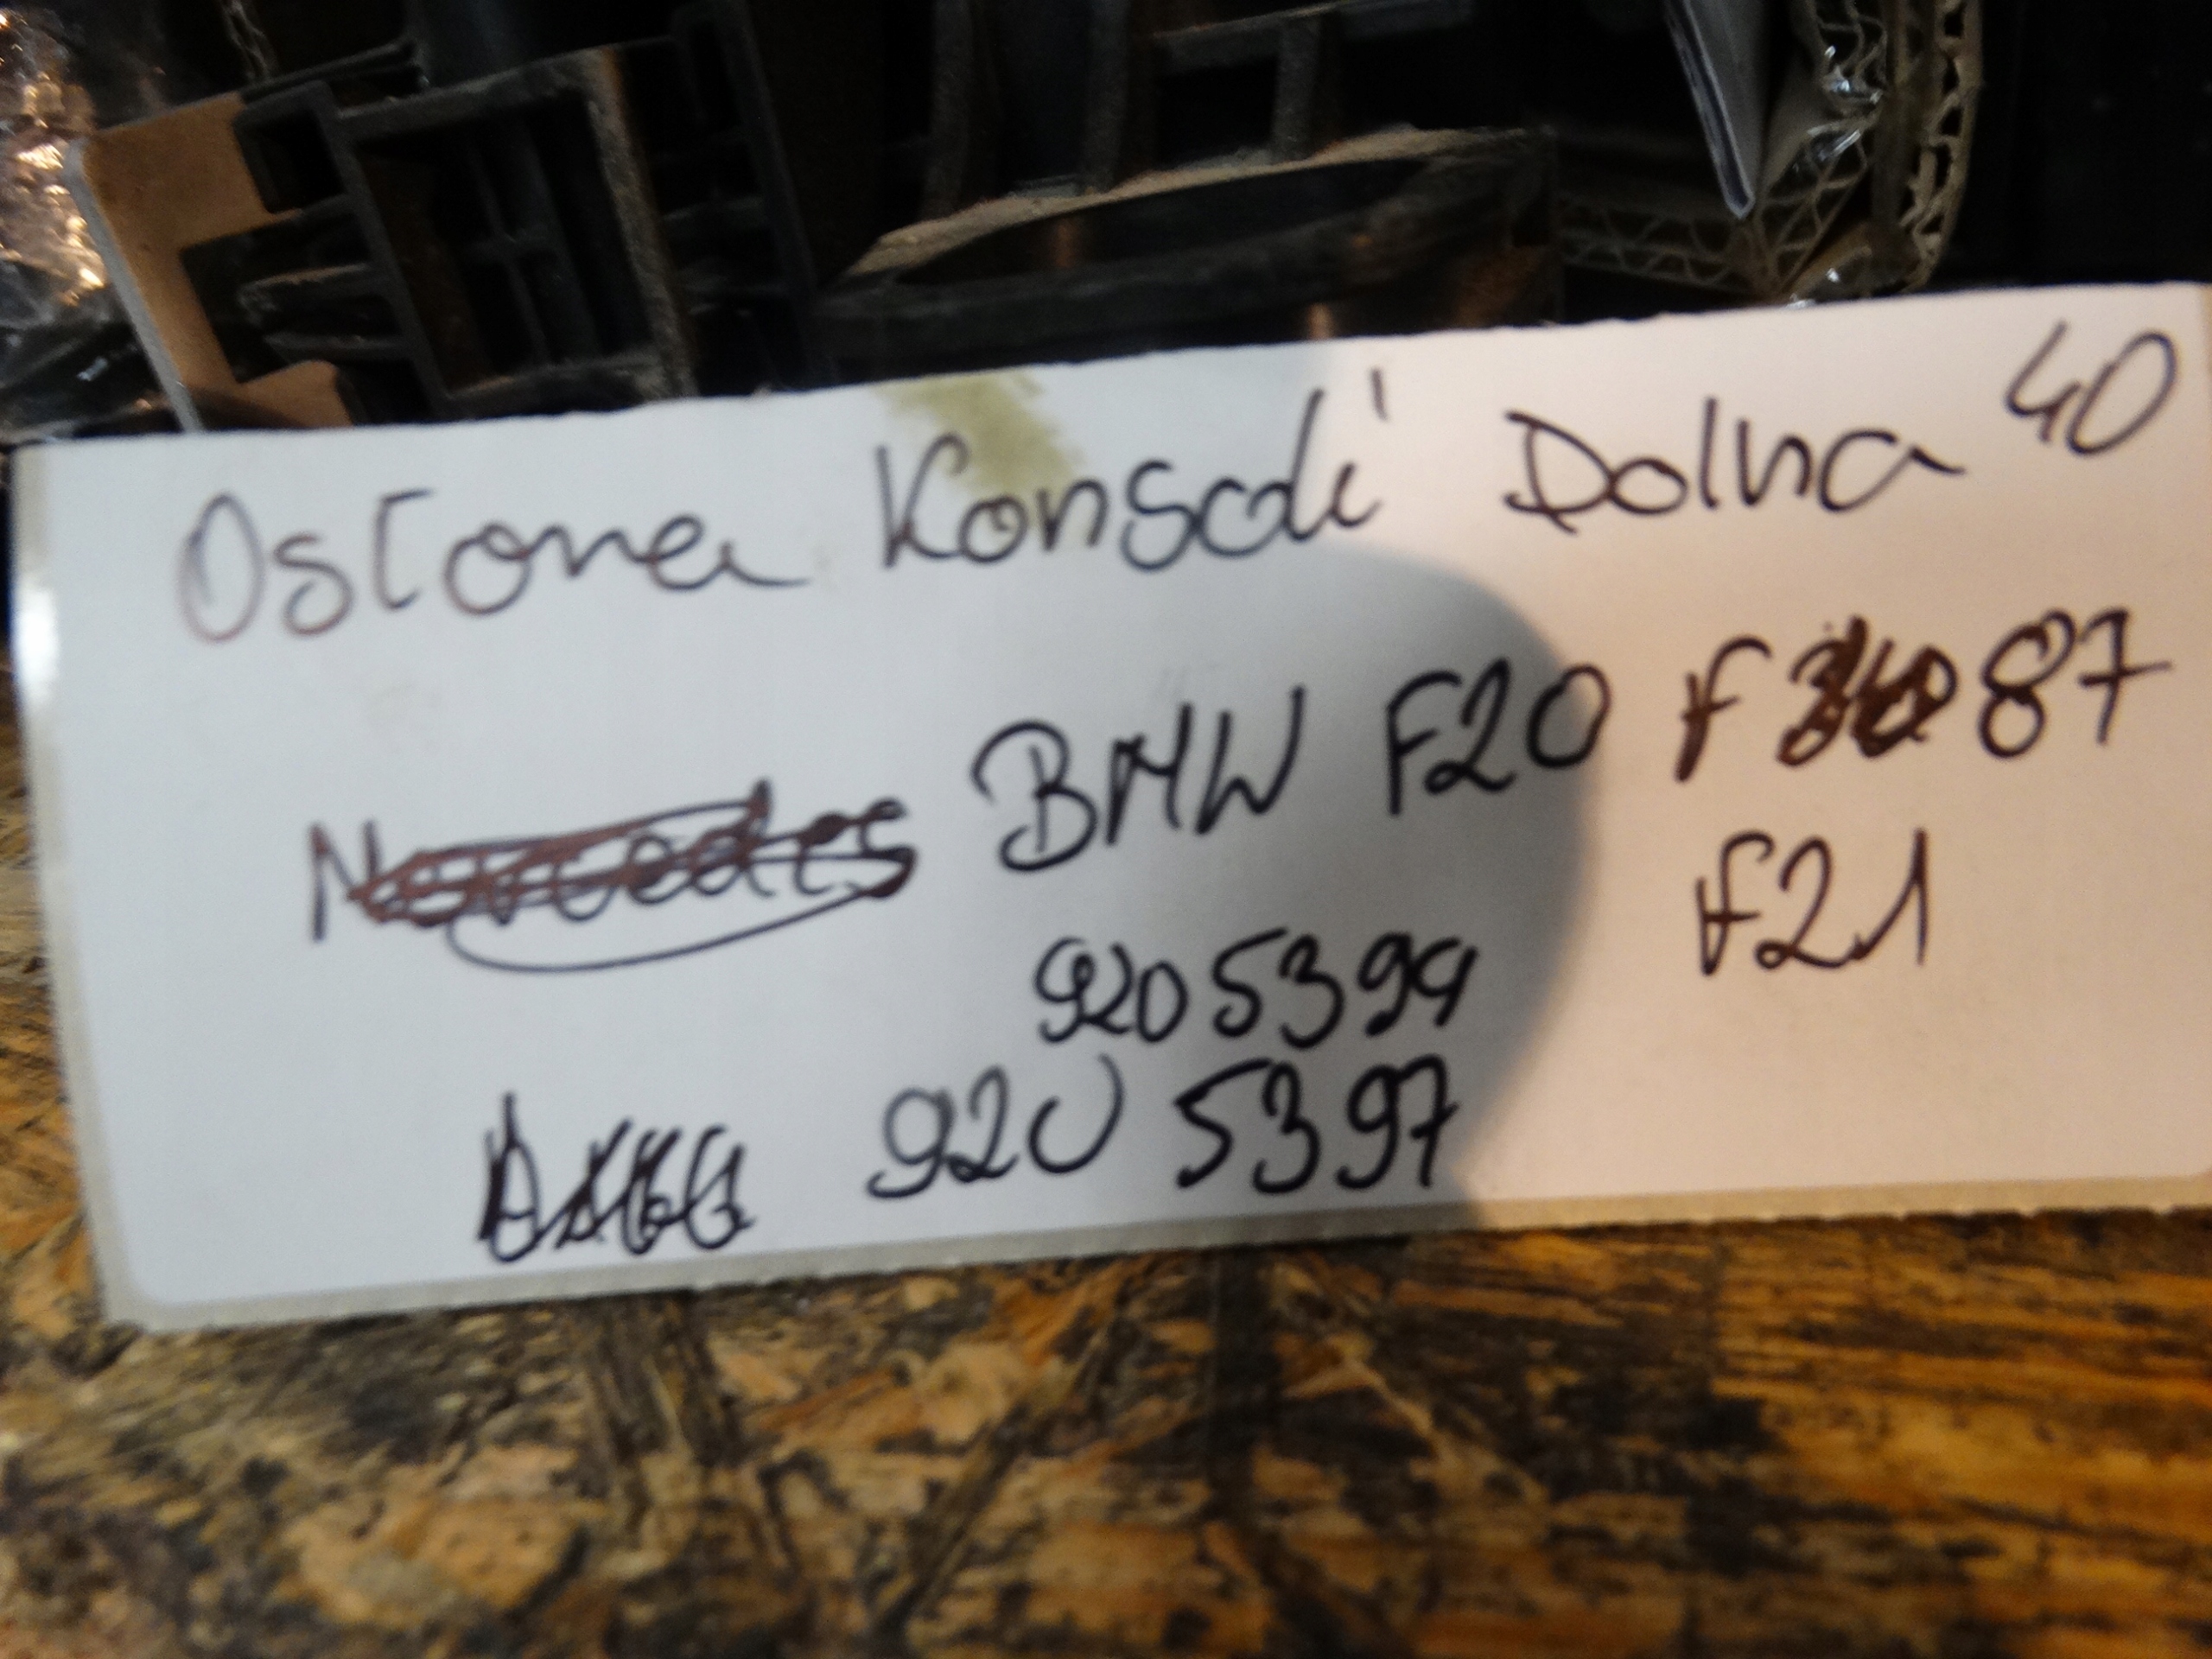 Osłona Konsoli Dolna 40
BMW F20 F 87
F21
9205399
920 5397